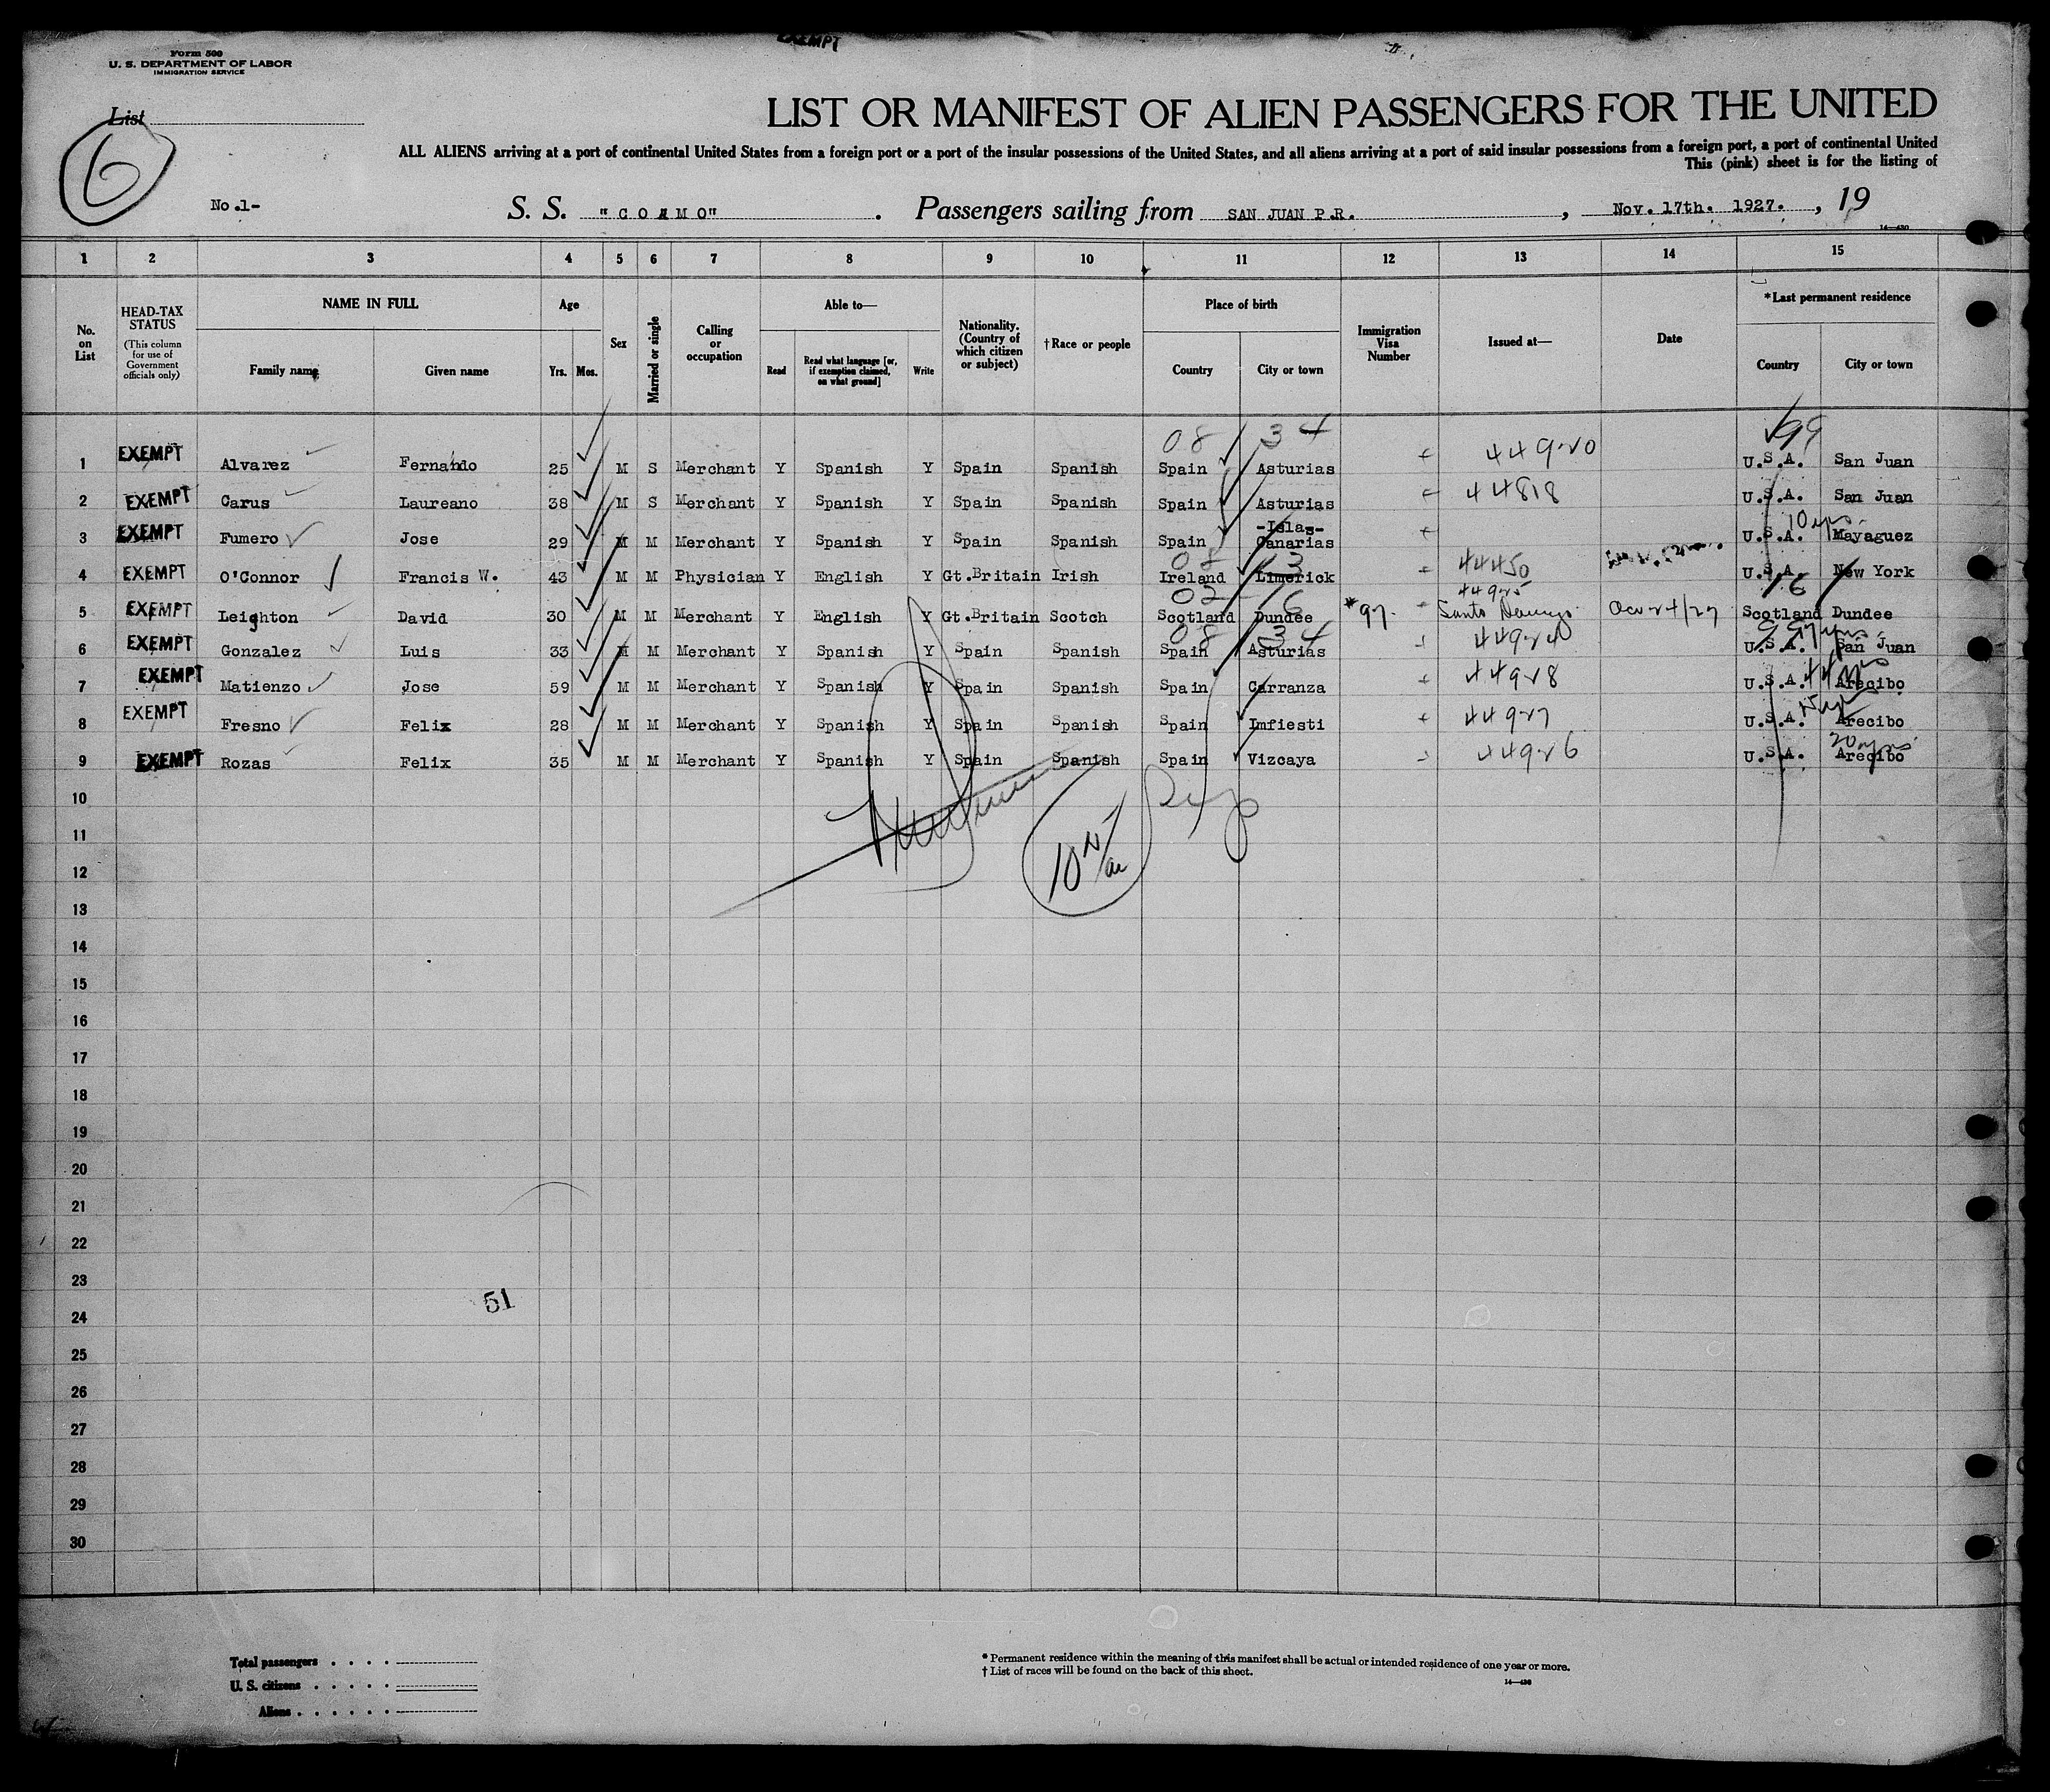 EXEMPT
Form 500
U. S. DEPARTMENT OF LABOR
IMMIGRATION SERVICE
List
6
LIST OR MANIFEST OF ALIEN PASSENGERS FOR THE UNITED
ALL ALIENS arriving at a port of continental United States from a foreign port or a port of the insular possessions of the United States, and all aliens arriving at a port of said insular possessions from a foreign port, a port of continental United
This (pink) sheet is for the listing of
No.1- S. S. "COAMO" . Passengers sailing from SAN JUAN P.R. , Nov. 17th. 1927. , 19
14—430
1 2 3 4 5 6 7 8 9 10 11 12 13 14 15
No. on List
HEAD-TAX STATUS
(This column for use of Government officials only)
NAME IN FULL
Family name Given name
Age
Yrs. Mos.
Sex
Married or single
Calling or occupation
Able to—
Read
Read what language [or, if exemption claimed, on what ground]
Write
Nationality. (Country of which citizen or subject)
†Race or people
Place of birth
Country City or town
Immigration Visa Number
Issued at—
Date
*Last permanent residence
Country City or town
08 34 99
1 EXEMPT Alvarez Fernando 25 M S Merchant Y Spanish Y Spain Spanish Spain Asturias 44920 U.S.A. San Juan
2 EXEMPT Carus Laureano 38 M S Merchant Y Spanish Y Spain Spanish Spain Asturias 44818 U.S.A. San Juan
3 EXEMPT Fumero Jose 29 M M Merchant Y Spanish Y Spain Spanish Spain -Islas- Canarias U.S.A. 10 yrs. Mayaguez
08 3
4 EXEMPT O'Connor Francis W. 43 M M Physician Y English Y Gt.Britain Irish Ireland Limerick 44450 U.S.A. New York
02 16 44925 16
5 EXEMPT Leighton David 30 M M Merchant Y English Y Gt.Britain Scotch Scotland Dundee *97. Santo Domingo Oct 24/27 Scotland Dundee
08 34
6 EXEMPT Gonzalez Luis 33 M M Merchant Y Spanish Y Spain Spanish Spain Asturias 44924 U.S.A. San Juan
7 EXEMPT Matienzo Jose 59 M M Merchant Y Spanish Y Spain Spanish Spain Carranza 44928 U.S.A. 44 yrs Arecibo
8 EXEMPT Fresno Felix 28 M M Merchant Y Spanish Y Spain Spanish Spain Imfiesti 44927 U.S.A. Arecibo
9 EXEMPT Rozas Felix 35 M M Merchant Y Spanish Y Spain Spanish Spain Vizcaya 44926 U.S.A. 20 yrs Arecibo
10
11
12
13
14
15
16
17
18
19
20
21
22
23
51
24
25
26
27
28
29
30
Total passengers
U. S. citizens
Aliens
* Permanent residence within the meaning of this manifest shall be actual or intended residence of one year or more.
† List of races will be found on the back of this sheet.
14—430